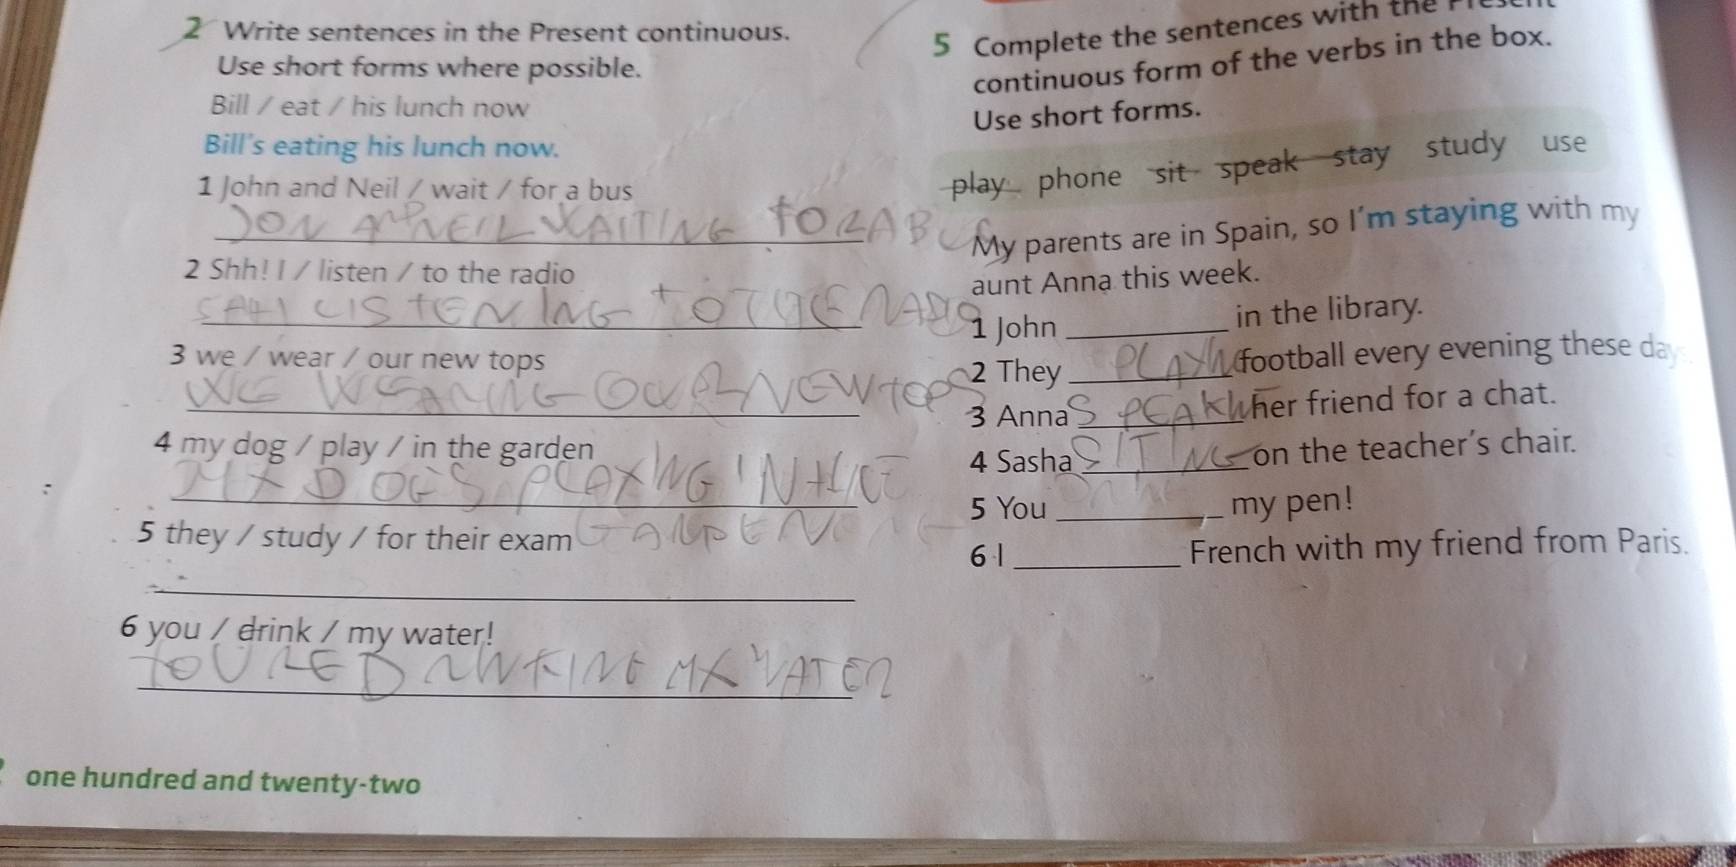 2 Write sentences in the Present continuous.
Use short forms where possible.
Bill / eat / his lunch now
Bill's eating his lunch now.
1 John and Neil / wait / for a bus
JON AND NEIL WAITING FOR A BUS
2 Shh! I / listen / to the radio
LISTENING TO THE RADIO
3 we / wear / our new tops
WE WEARING OUR NEW TOPS
4 my dog / play / in the garden
MY DOG'S PLAYING IN THE
GARDEN
5 they / study / for their exam
6 you / drink / my water!
YOU'RE DRINKING MY WATER
one hundred and twenty-two
5 Complete the sentences with the Present
continuous form of the verbs in the box.
Use short forms.
play phone sit speak stay study use
My parents are in Spain, so I'm staying with my
aunt Anna this week.
1 John ________ in the library.
2 They PLAYIN football every evening these days.
3 Anna SPEAKIN her friend for a chat.
4 Sasha SITING on the teacher's chair.
5 You ________ my pen!
6 I ________ French with my friend from Paris.